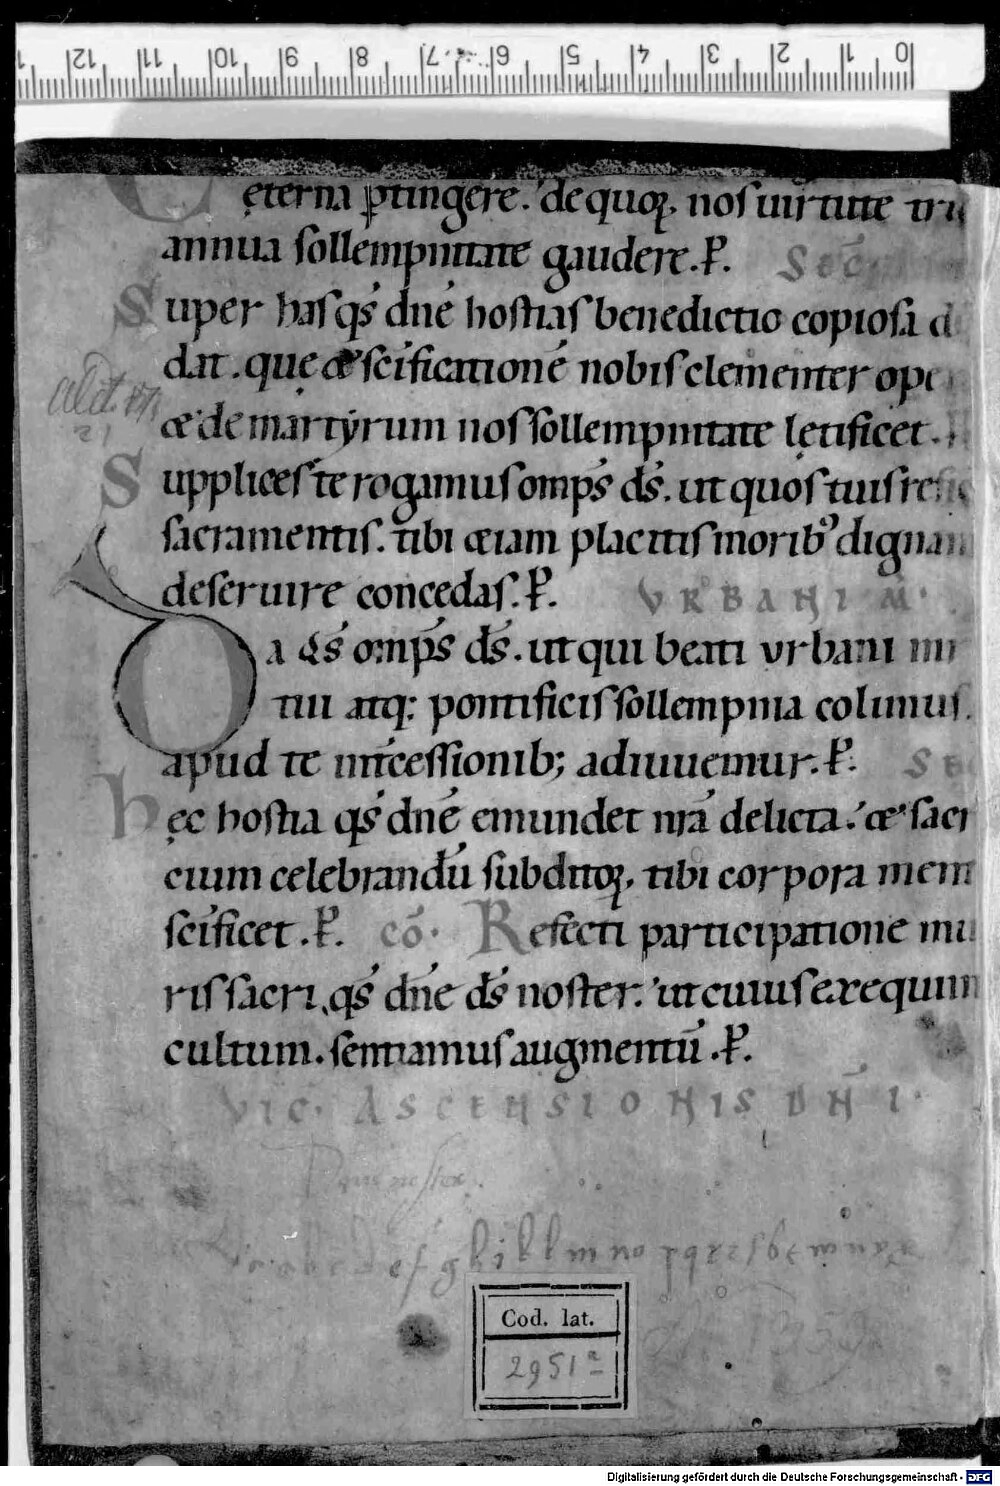 0 1 2 3 4 5 6 7 8 9 10 11 12
ęterna ꝑtingere. de quoꝝ nos uirtute tri
annua sollempnitate gaudere. P̄. SEC̄
Super has qs̄ dn̄e hostias benedictio copiosa d
dat. quę & sc̄ificationē nobis clementer ope
& de martyrum nos sollempnitate lętificet.
Supplices te rogamus omp̄s ds̄. ut quos tuis refic
sacramentis. tibi &iam placitis morib; dignan
deseruire concedas. P̄. VRBANI M̄.
Da qs̄ omp̄s ds̄. ut qui beati urbani mr
tui atq: pontificis sollempnia colimus.
apud te int̄cessionib; adiuuemur. P̄. SE
hęc hostia qs̄ dn̄e emundet nr̄a delicta. & sacri
cium celebrandū subditoꝝ tibi corpora mem
sc̄ificet. P̄. cō. Refecti participatione mu
ris sacri, qs̄ dn̄e ds̄ noster. ut cuius exequim
cultum. sentiamus augmentū. P̄.
VIC. ASCENSIONIS DN̄I.
Cod. lat.
2951ª
Digitalisierung gefördert durch die Deutsche Forschungsgemeinschaft - DFG